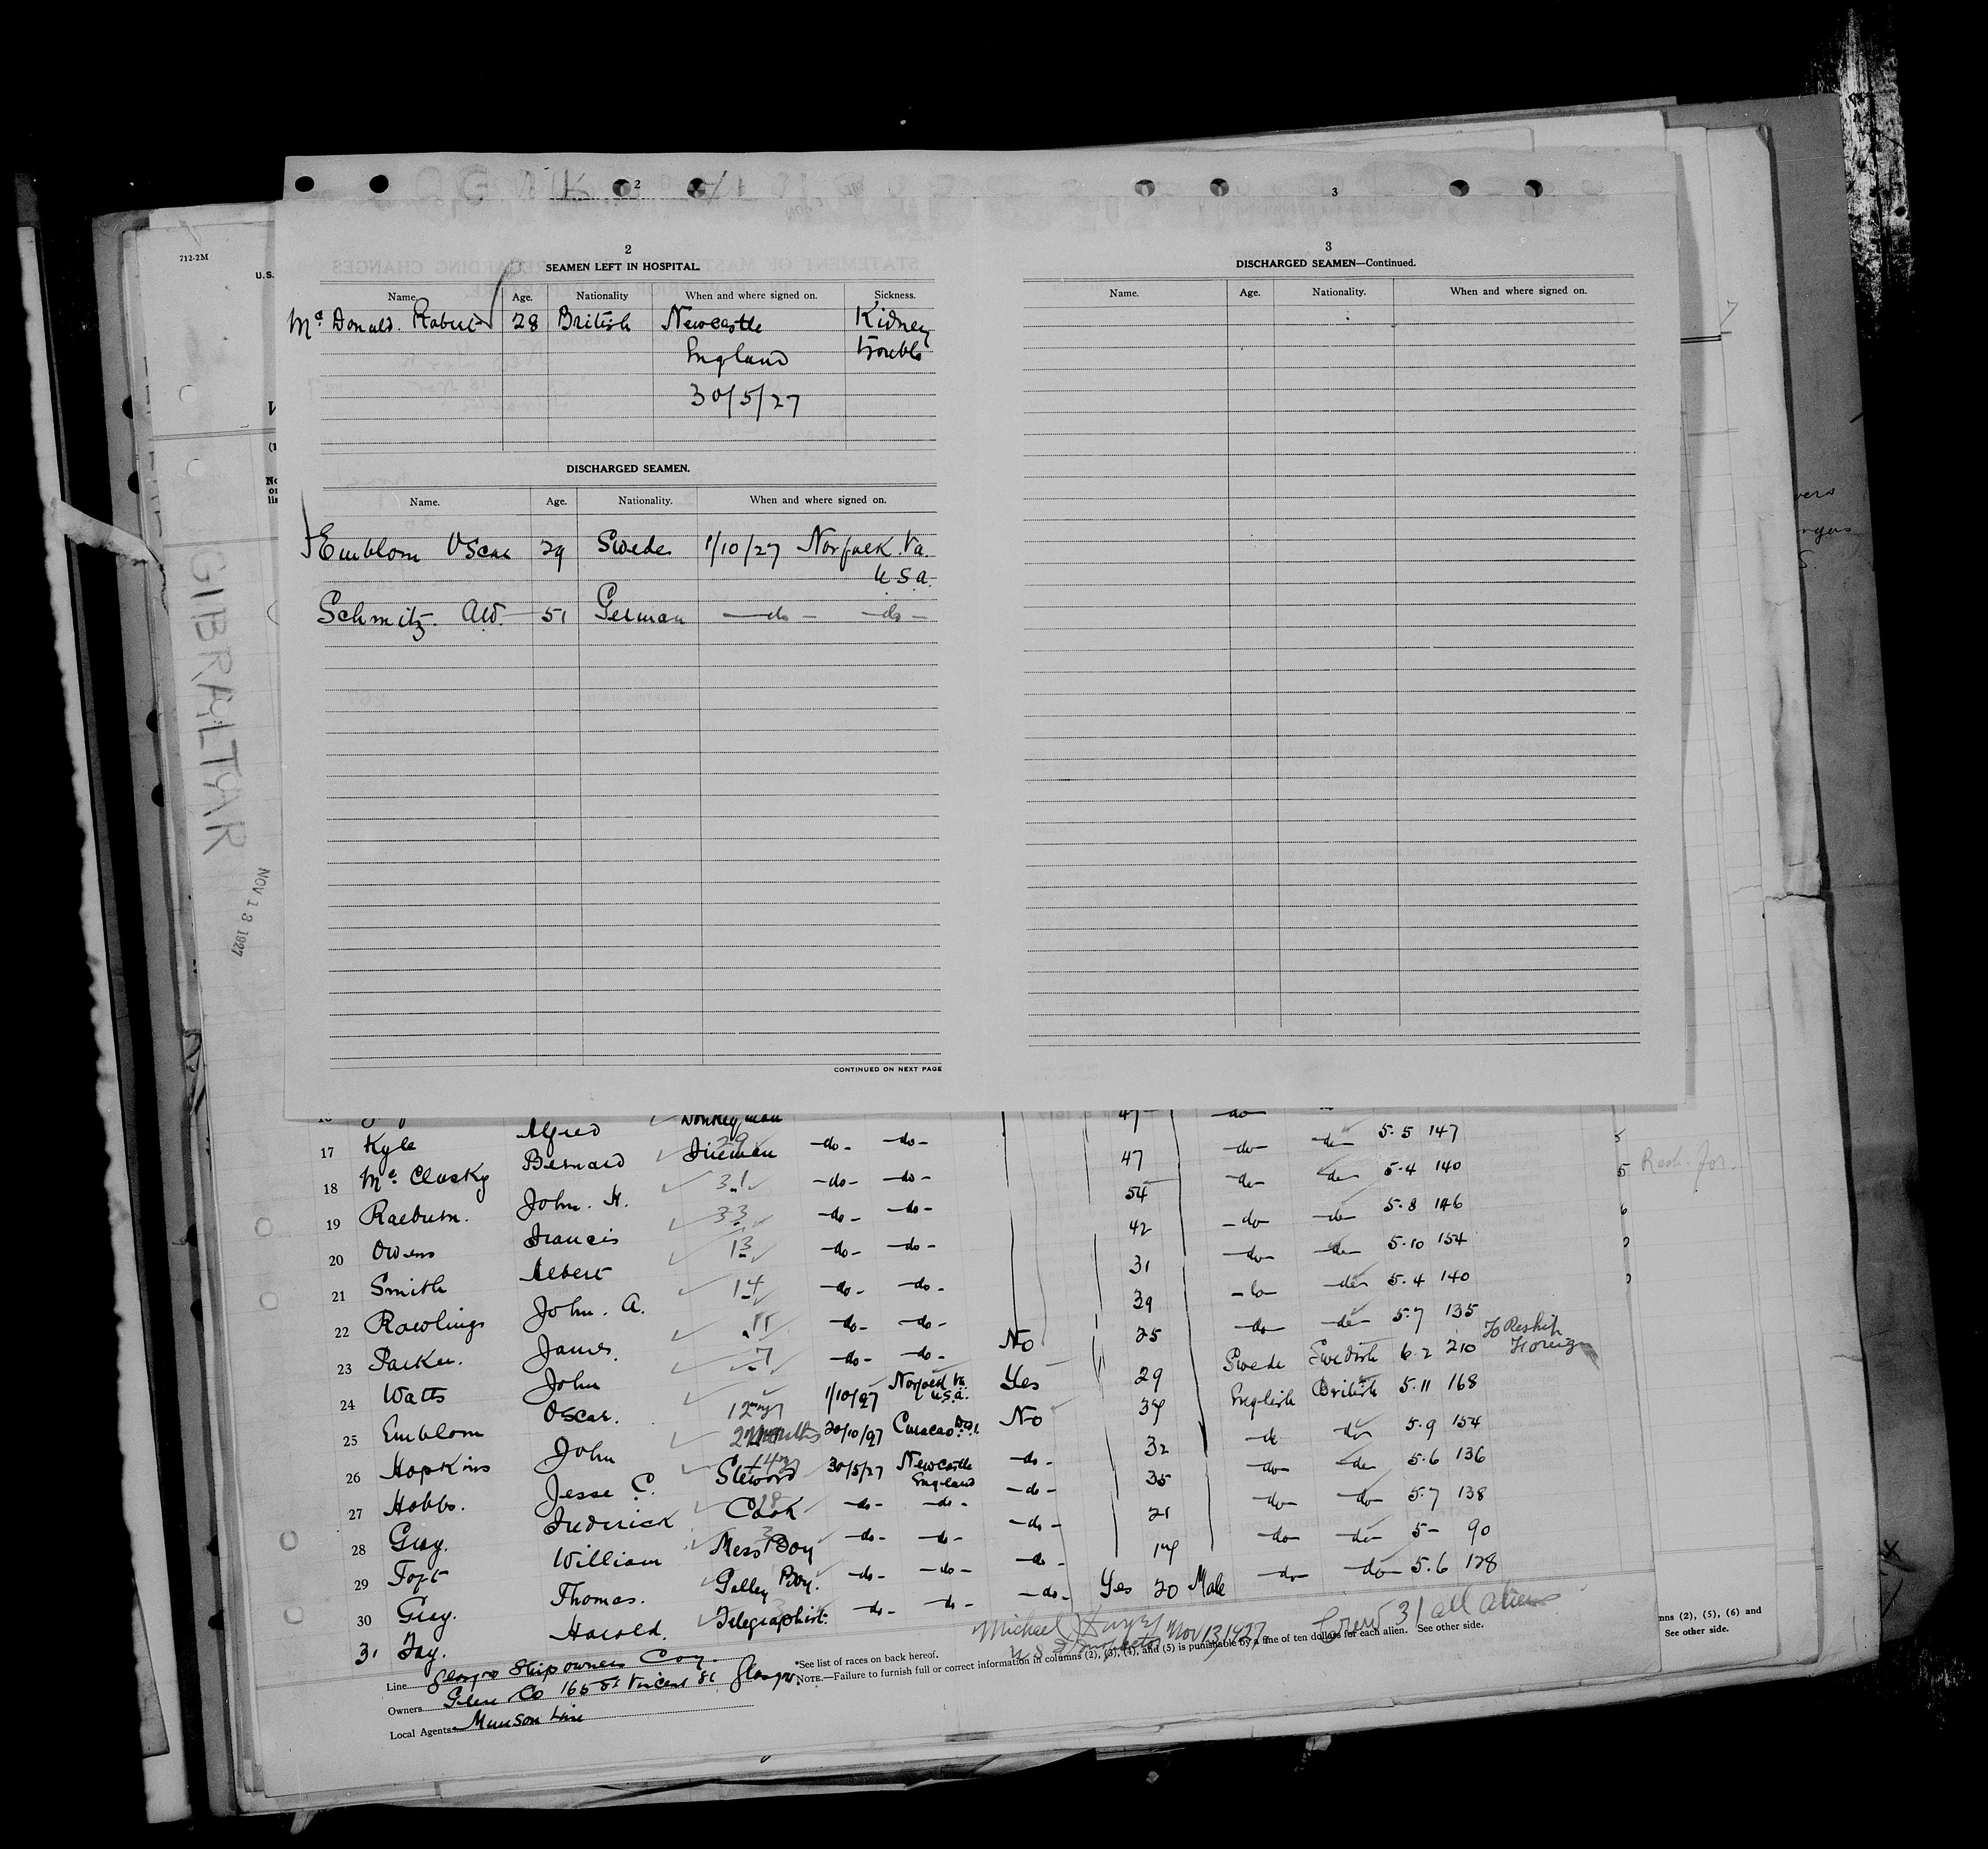 2
3
712-2M
U.S.
2
SEAMEN LEFT IN HOSPITAL.
Name. Age. Nationality When and where signed on. Sickness.
Mc Donald. Robert 28 British Newcastle Kidney
England trouble
30/5/27
DISCHARGED SEAMEN.
Name. Age. Nationality. When and where signed on.
Emblom Oscar 29 Swede 1/10/27 Norfolk. Va.
U.S.A.
Schmitz. AW. 51 German —do— —do—
CONTINUED ON NEXT PAGE
3
DISCHARGED SEAMEN—Continued.
Name. Age. Nationality. When and where signed on.
GIBRALTAR
NOV 13 1927
Alfred Donkeyman 47 —do—
17 Kyle Bernard Fireman —do— —do— 47 —do— —do— 5.5 147
18 Mc Clusky John. H. 31 —do— —do— 54 —do— —do— 5.4 140
19 Raeburn. Francis 33 —do— —do— 42 —do— —do— 5.8 146
20 Owens Albert 13 —do— —do— 31 —do— —do— 5.10 154
21 Smith John. A. 14 —do— —do— 39 —do— —do— 5.4 140
22 Rawlings James. 11 —do— —do— No 25 —do— —do— 5.7 135
23 Parker. John 7 —do— —do— Yes 29 Swede Swedish 6.2 210 To Reship Foreign
24 Watts Oscar. 12 1/10/27 Norfolk Va. U.S.A. No 34 English British 5.11 168
25 Emblom John 2 Months 20/10/27 Curacao —do— 32 —do— —do— 5.9 154
26 Hopkins Jesse C. Steward 30/5/27 Newcastle England —do— 35 —do— —do— 5.6 136
27 Hobbs. Frederick Cook —do— —do— —do— 21 —do— —do— 5.7 138
28 Gray. William Mess Boy —do— —do— —do— 14 —do— —do— 5— 90
29 Toft Thomas. Galley Boy. —do— —do— —do— Yes 20 Male —do— —do— 5.6 128
30 Gray. Harold. Telegraphist. —do— —do—
31 Fay.
Michael Nov 13, 1927 Crew 31 all aliens
U S Inspector
Line Glasgow Shipowners Coy.
Owners Glen Co 165 St Vincent St Glasgow.
Local Agents Munson Line
*See list of races on back hereof.
NOTE.—Failure to furnish full or correct information in columns (2), (3), (4), and (5) is punishable by a fine of ten dollars for each alien. See other side.
mns (2), (5), (6) and
See other side.